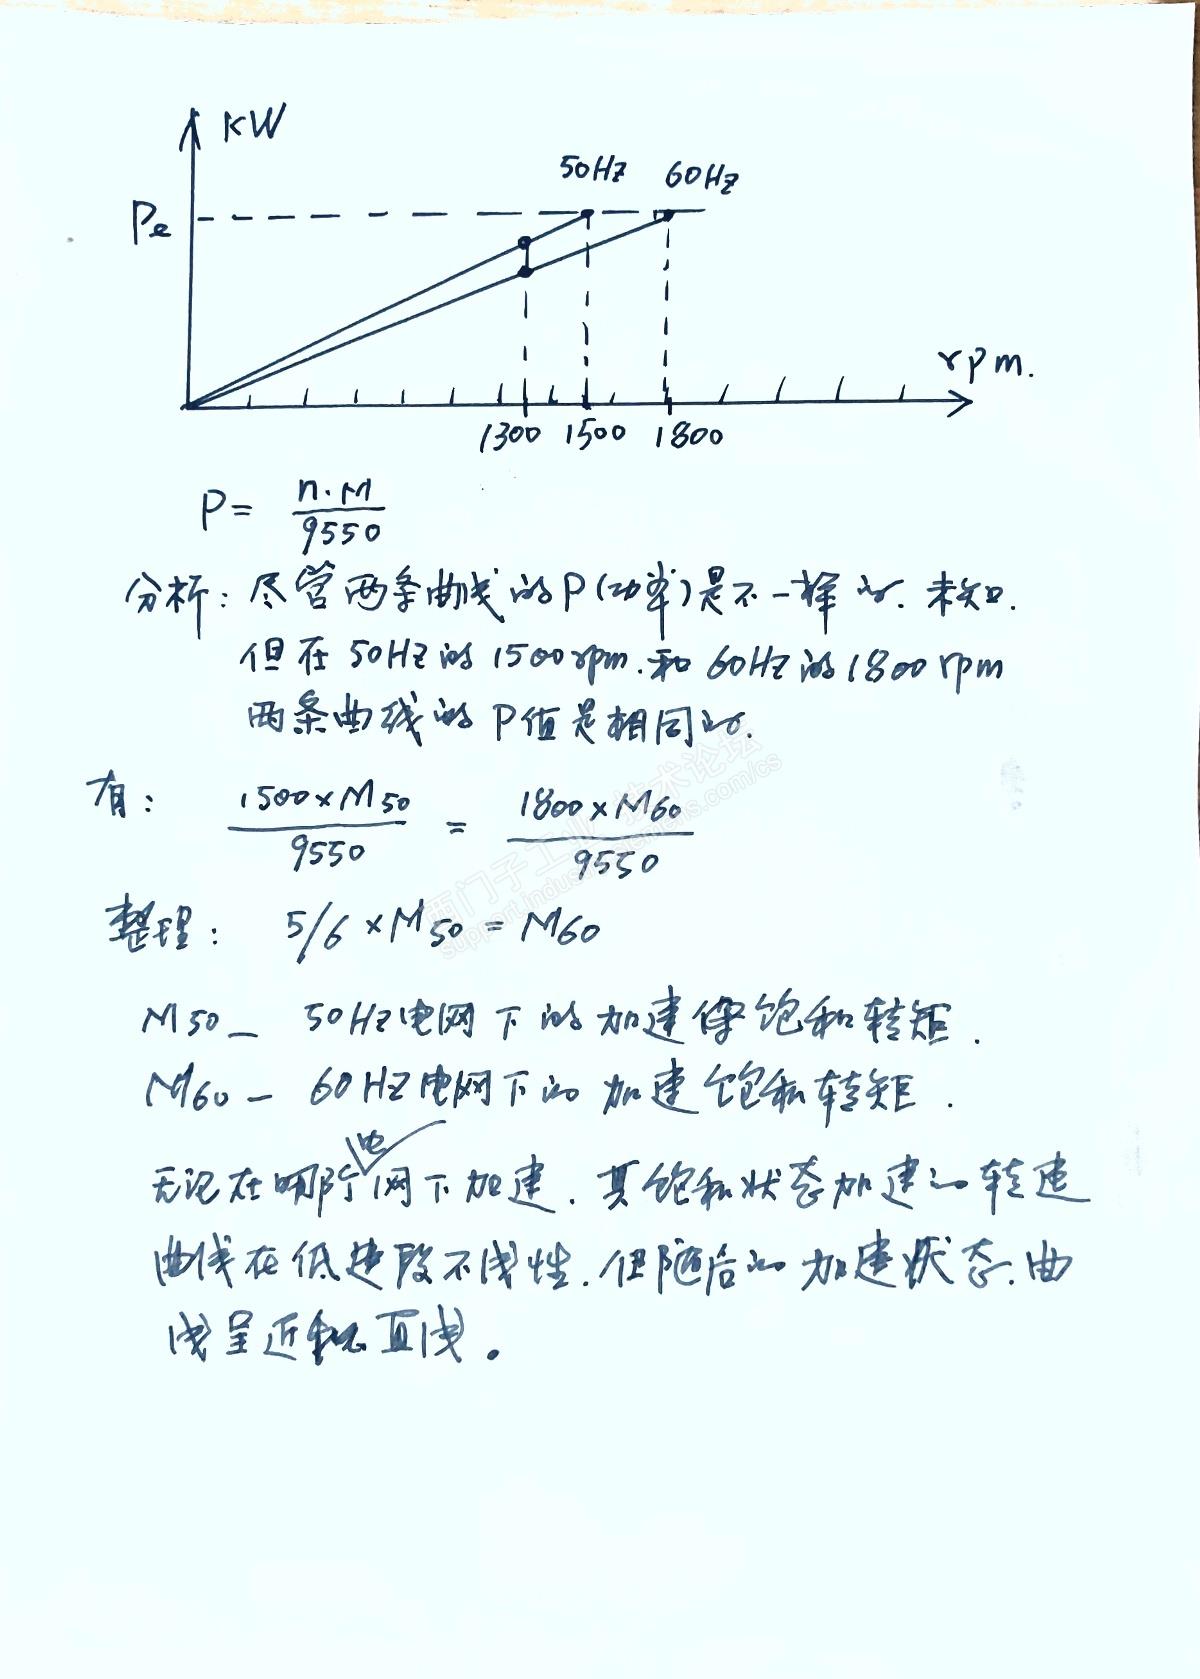 KW
50Hz 60Hz
Pe
rpm.
1300 1500 1800
P= n·M/9550
分析: 尽管两条曲线的P(功率)是不一样的. 未知.
但在50Hz的1500rpm.和60Hz的1800rpm
两条曲线的P值是相同的.
有: 1500×M50/9550 = 1800×M60/9550
整理: 5/6×M50=M60
M50— 50Hz电网下的加速饱和转矩.
M60— 60Hz电网下的加速饱和转矩.
电
无论在哪个网下加速.其饱和状态加速的转速
曲线在低速段不线性.但随后的加速状态.曲
线呈近似直线。
西门子工业技术论坛
support.industry.siemens.com/cs